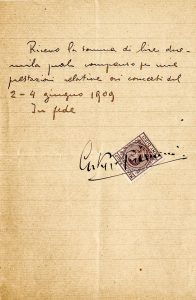 Ricevo la somma di lire due-
mila quale compenso per mie
prestazioni relative ai concerti del
2-4 giugno 1909
In fede